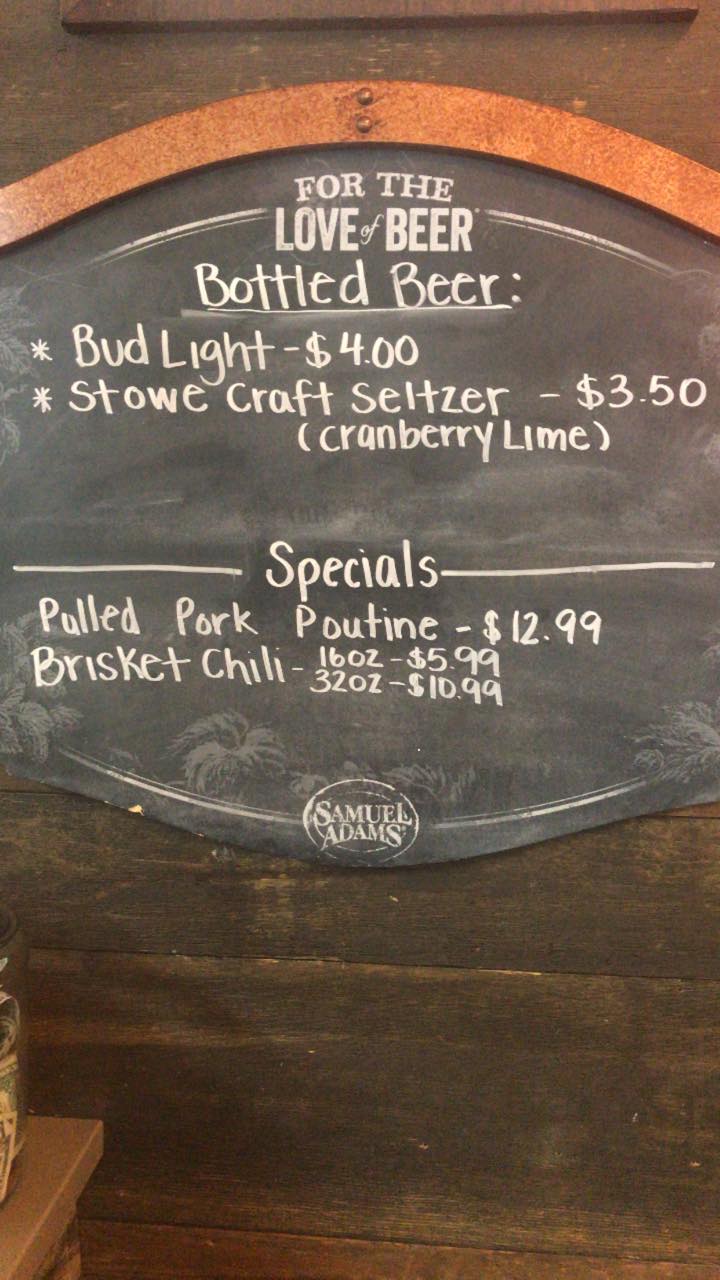 FOR THE
LOVE of BEER
Bottled Beer:
* Bud Light - $4.00
* Stowe Craft Seltzer - $3.50
(Cranberry Lime)
Specials
Pulled Pork Poutine - $12.99
Brisket Chili - 16oz - $5.99
32oz - $10.99
SAMUEL
ADAMS